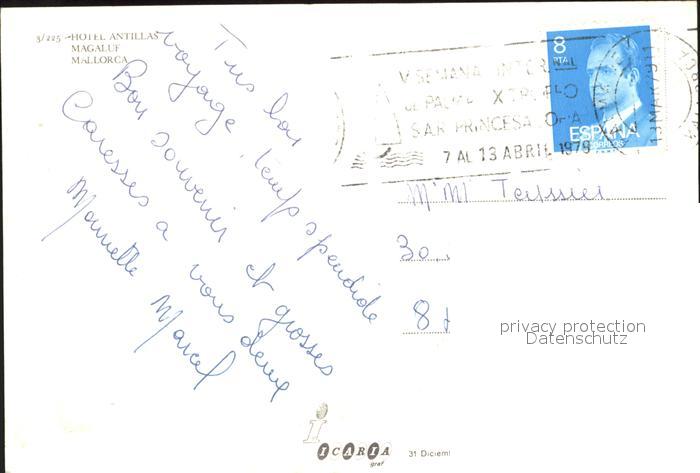 3/225 - HOTEL ANTILLAS
MAGALUF
MALLORCA
Très bon
voyage, temps splendide
Bon souvenir et grosses
Caresses a vous deux
Marcel
V SEMANA
DE PALMA X TROFEO
S.A.R. PRINCESA
7 AL 13 ABRIL 1978
8
PTA
ESPAÑA
CORREOS
M Mme
30
8
privacy protection
Datenschutz
i
ICARIA
graf
31 Diciem